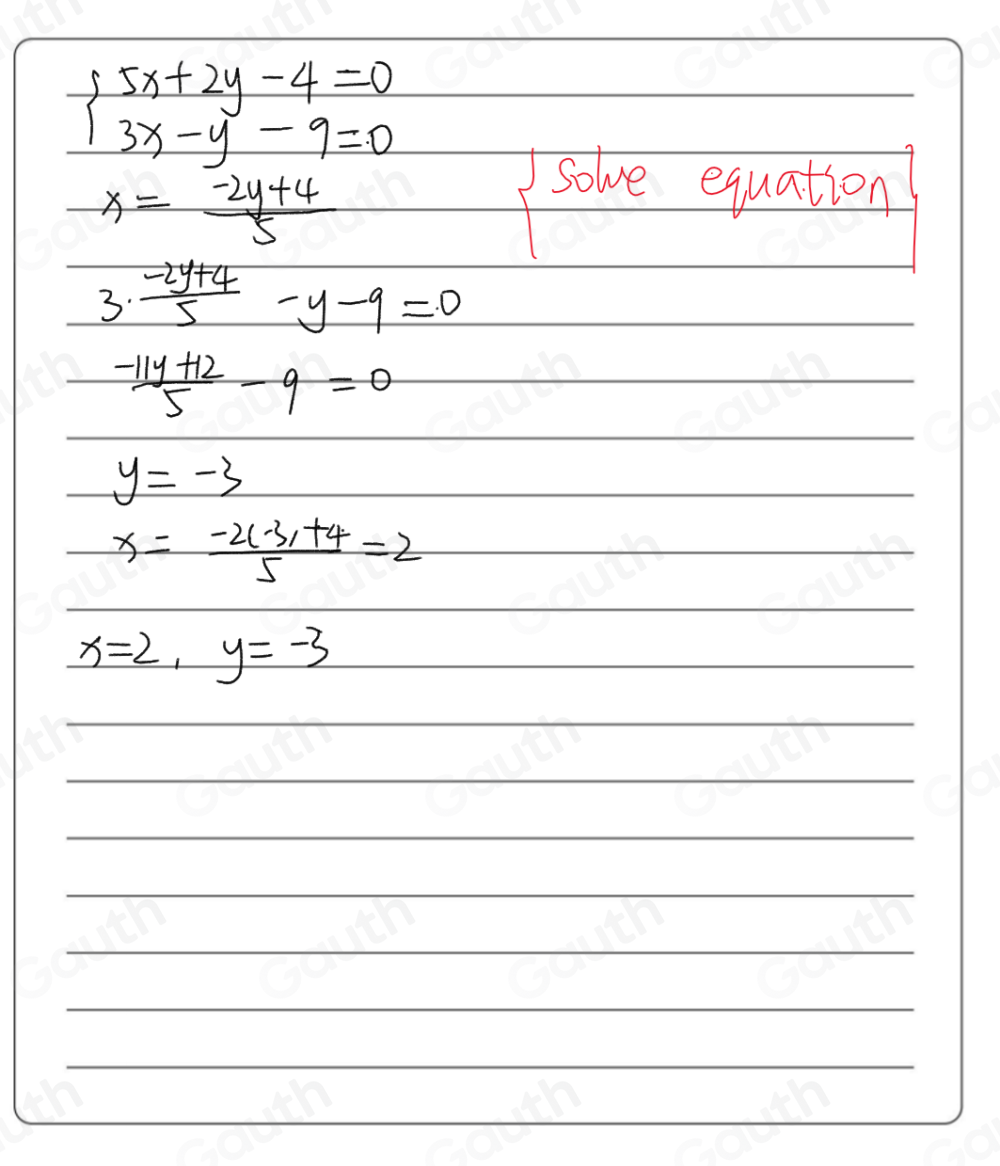 { 5x+2y-4=0
3x-y-9=0
{solve equation}
x = \frac{-2y+4}{5}
3·\frac{-2y+4}{5} -y-9=0
\frac{-11y+12}{5} - 9 = 0
y = -3
x = \frac{-2(-3)+4}{5} = 2
x=2, y=-3
Gauth